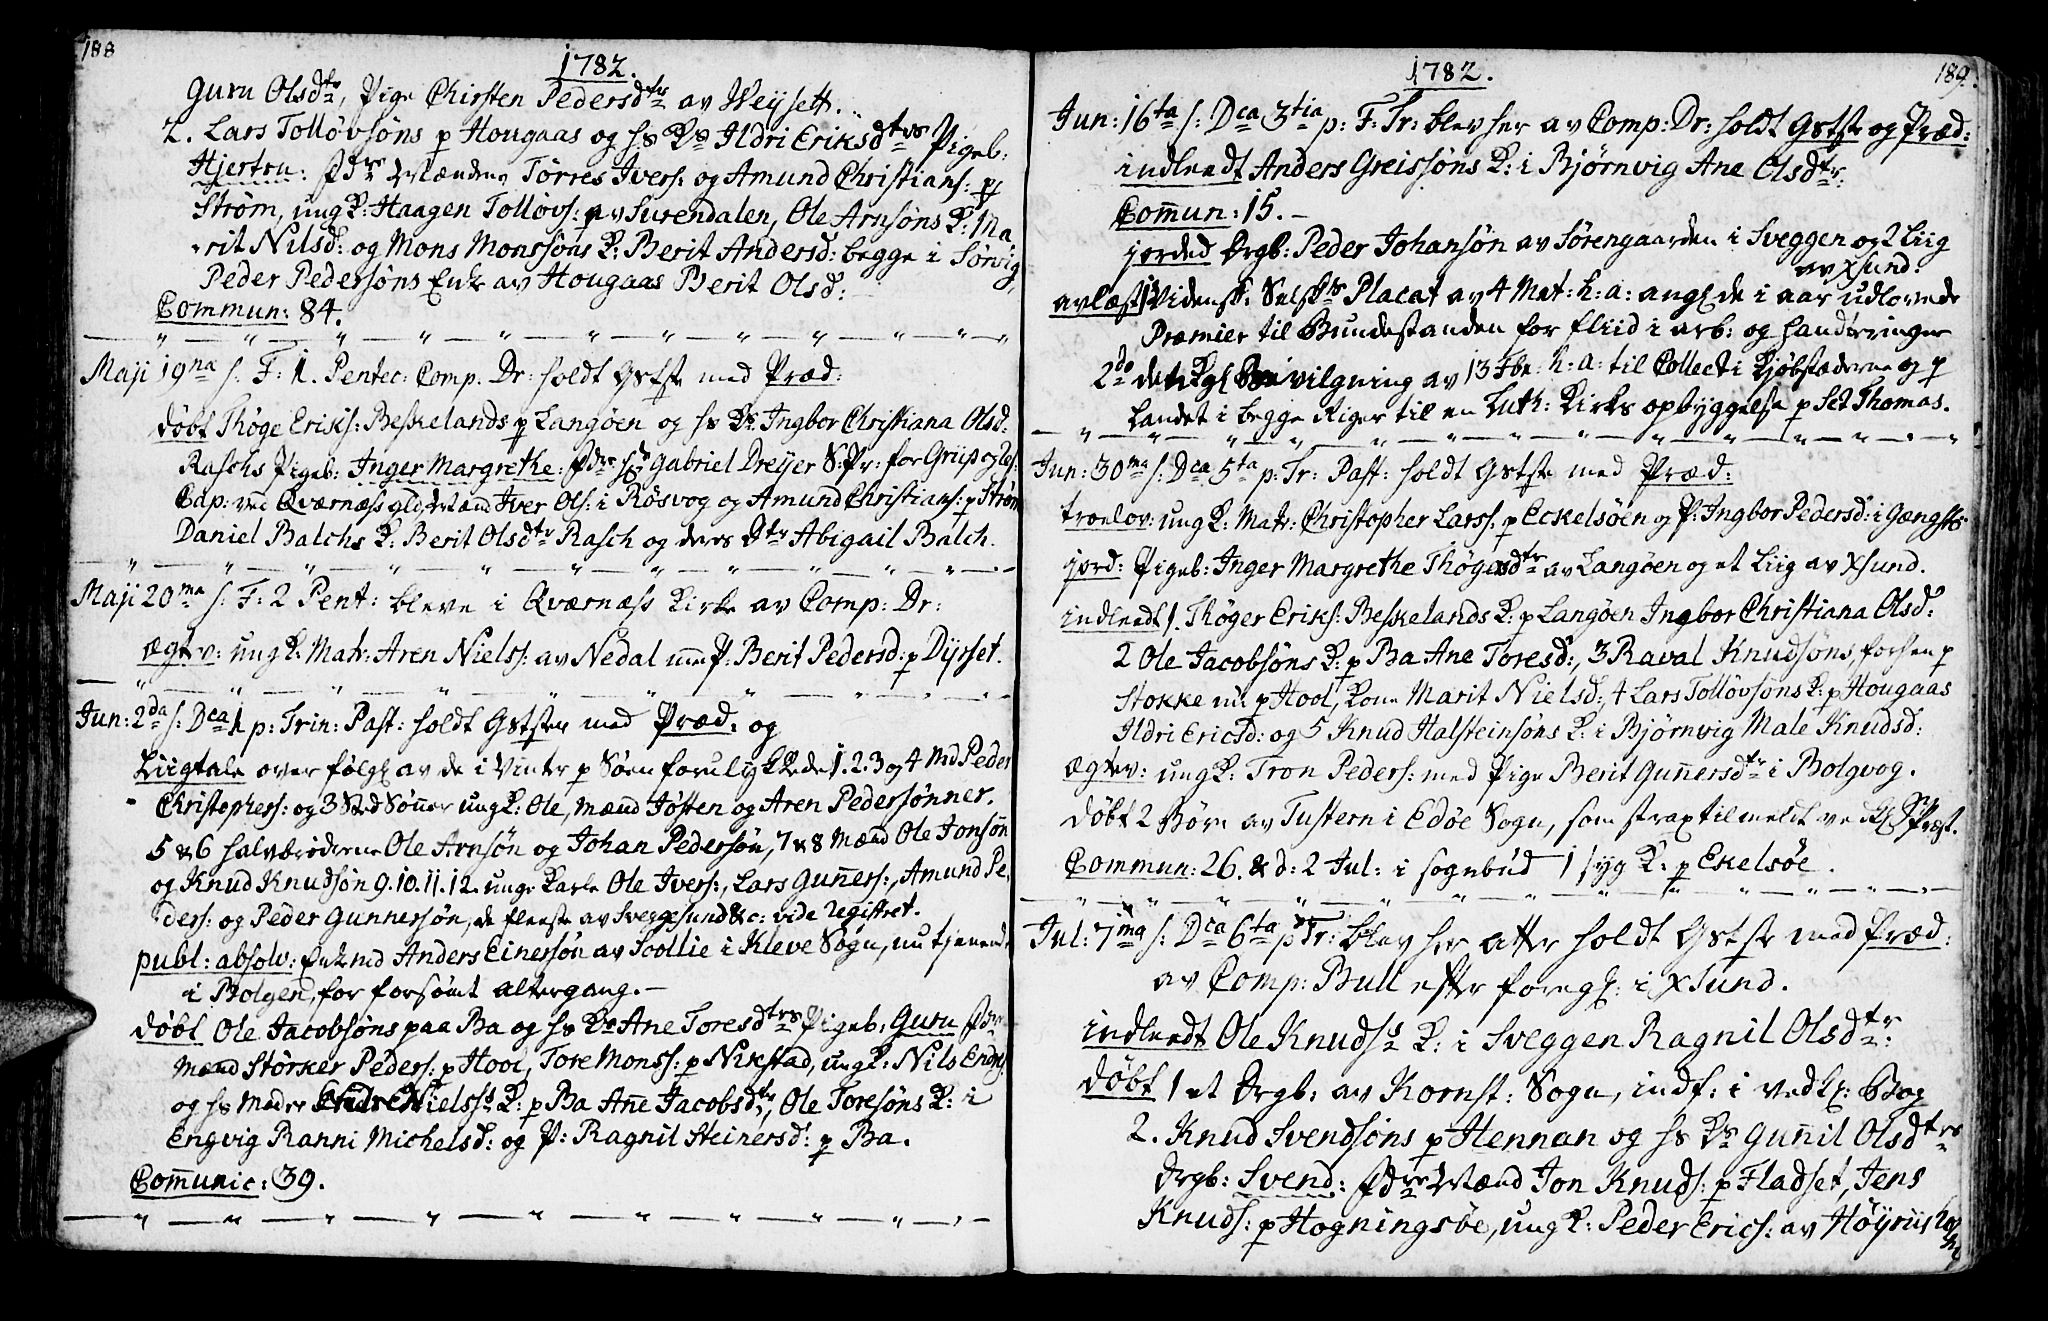 188
1782.
Guru Olsdtr, Pige Chirsten Pedersdtr av Weysett.
2. Lars Tolløvsøns p Hougaas og hs Ks Ildri Eriksdtrs Pigeb:
Hjertru: Fdre Mændene Torres Ivers: og Amund Christians: p
Strøm, ung K: Haagen Tolløvs: av Surendalen, Ole Arnsøns K: Ma
rit Nilsd: og Mons Monssøns K: Berit Andersd: begge i Sørvig,
Peder Pedersøns Enke av Hougaas Berit Olsd:
Commun: 84.
Maji 19na s: F: 1. Pentec: Comp. Dr: holdt Gstste med Præd:
døbt Thøge Eriks: Beskelands p Langøen og hs Ks Ingbor Christiana Olsd:
Raschs Pigeb: Inger Margrethe: Fdre Hr Gabriel Dreyer S:Pr: for Griip og
Cap: ved Qværnæss gld, Mænd Iver Ols: i Røsvog og Amund Christians: p Strøm
Daniel Balchs K: Berit Olsdtr Rasch og deres Dtr Abigail Balch.
Maji 20ma s: F: 2 Pent: bleve i Qværnæss Kirke av Comp: Dr:
ægtev: ung K: Matr: Aren Niels: av Nedal med P: Berit Pedersd: p Dyrset.
Jun: 2da s: Dca 1 p: Trin: Past: holdt Gstste med Præd: og
Liigtale over følgl av de i Vinter p Søen forulykkede 1. 2. 3 og 4 Md Peder
Christophers: og 3 Sted Sønner ung K: Ole, Mænd Josten og Aren Pedersønner.
5 & 6 halvbrødrene Ole Arnsøn og Johan Pedersøn, 7 & 8 Mænd Ole Jonsøn
og Knud Knudsøn 9. 10. 11. 12. unge Karle Ole Ivers:, Lars Gunners:, Amund Pe
ders: og Peder Gunnersøn, de fleeste av Sveggesund &c: vide Registret.
publ: absolv: Enkemd Anders Einersøn av Scollie i Kleve Sogn, nu tjenende
i Bolgen, for forsømt altergang.
døbt Ole Jacobsøns paa Ba og hs Ks Ane Toresdtrs Pigeb: Guru Fdre
Mænd Størker Peders: p Hool, Tore Monss: p Nikstad, ung K: Nils Endres:
og hs Moder Endre Nielss: K: p Ba Ane Jacobsdtr, Ole Toresøns K: i
Engvig Ranni Michelsd: og P: Ragnil Steinersd: p Ba.
Comunic: 39.
1782.
189.
Jun: 16ta s: Dca 3tia p: F: Tr: blev her av Comp: Dr: holdt Gstste og Præd:
indleedt Anders Greissøns K: i Bjørnvig Ane Olsdtr:
Comun: 15.
jorded Drgb: Peder Johansøn av Sørengaarden i Sveggen og 2 Liig
av Xsund:
avlæst 1 Vidensk: Selsks Placat av 4 Mat: h: a: angl de i aar udlovede
Præmier til Bundestanden for fliid i arb: og handteringer
2do det Kgl Bevilgning av 13 Fbr: h: a: til Collect i Kjøbstæderne og p
Landet i begge Riger til en Luth: Kirkes opbyggelse p Sct Thomas.
Jun: 30ma s: Dca 5ta p: Tr: Past: holdt Gstste med Præd:
troelov: ung K: Matr: Christopher Larss: p Eckelsøen og P: Ingbor Pedersd: i Gængst:
jord: Pigeb: Inger Margrethe Thøgesdtr av Langøen og et Liig av Xsund.
indleedt 1. Thøger Eriks: Beskelands K: p Langøen Ingbor Christiana Olsd:
2 Ole Jacobsøns K: p Ba Ane Toresd:, 3 Raval Knudsøns, forhen p
Stokke nu p Hool, Kone Marit Nielsd:, 4 Lars Tolløvsøns K: p Hougaas
Ildri Ericsd: og 5 Knud Halsteinsøns K: i Bjørnvig Male Knudsd:
ægtev: ung K: Tron Peders: med Pige Berit Gunnersdtr i Bolgvog.
døbt 2 Børn av Tustern i Edøe Sogn, som strax tilmeldt vedk: Sg Præst.
Commun: 26. & d: 2 Jul: i sognebud 1 syg K: p Ekelsøe.
Jul: 7ma s: Dca 6ta p Tr: blev her atter holdt Gstste med Præd:
av Comp: Bull efter foregl: i Xsund.
indleedt Ole Knudss K: i Sveggen Ragnil Olsdtr:
døbt 1 et Drgb: av Kornst: Sogn, indf: i vedk: Bog
2. Knud Svendsøns p Hennan og hs Ks Gunnil Olsdtrs
Drgb: Svend: Fdre Mænd Jon Knuds: p Fladset, Jens
Knuds: p Hogningsøe, ung K: Peder Erics: av Høyriis